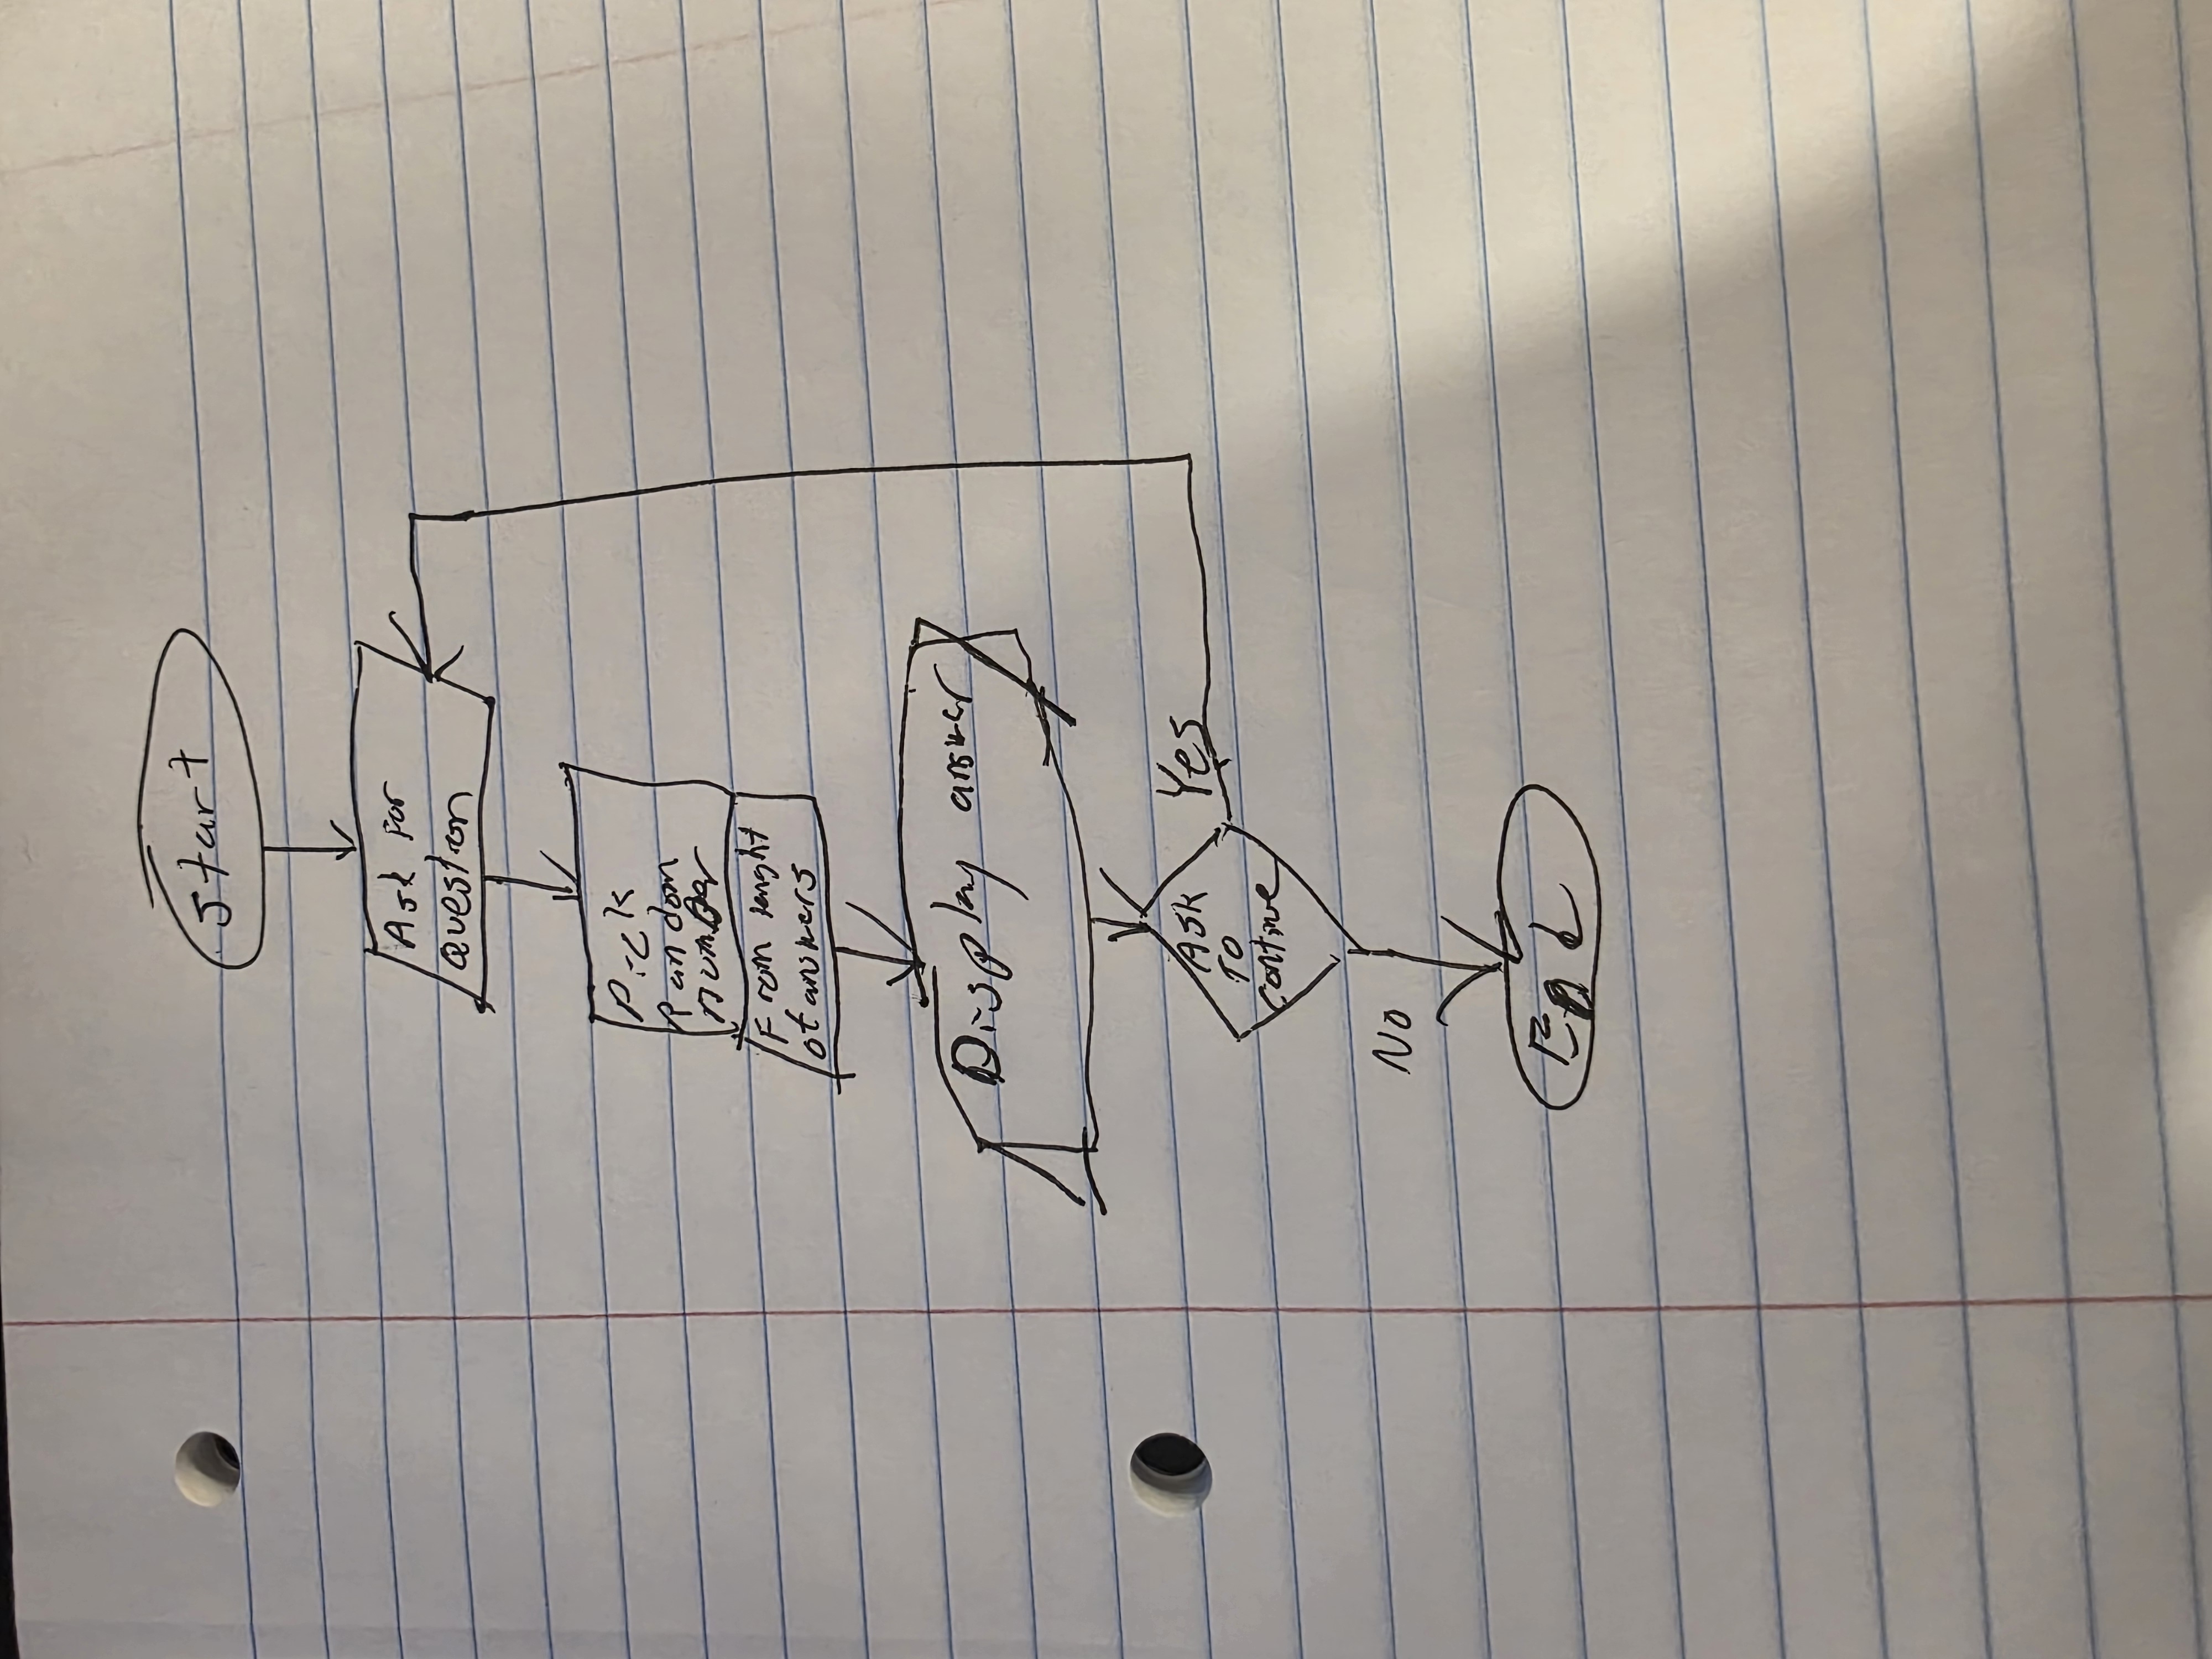 Start
Ask for
question
Pick
Random
number
From lenght
of answers
Display answer
Ask
To
continue
Yes
No
End